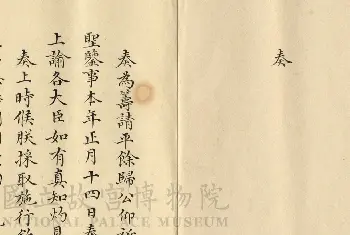 奏
奏為籌請平餘歸公仰祈
聖鑒事本年正月十四日奏
上諭各大臣如有真知灼見
奏上時候朕採取施行欽
國立故宮博物院
NATIONAL PALACE MUSEUM